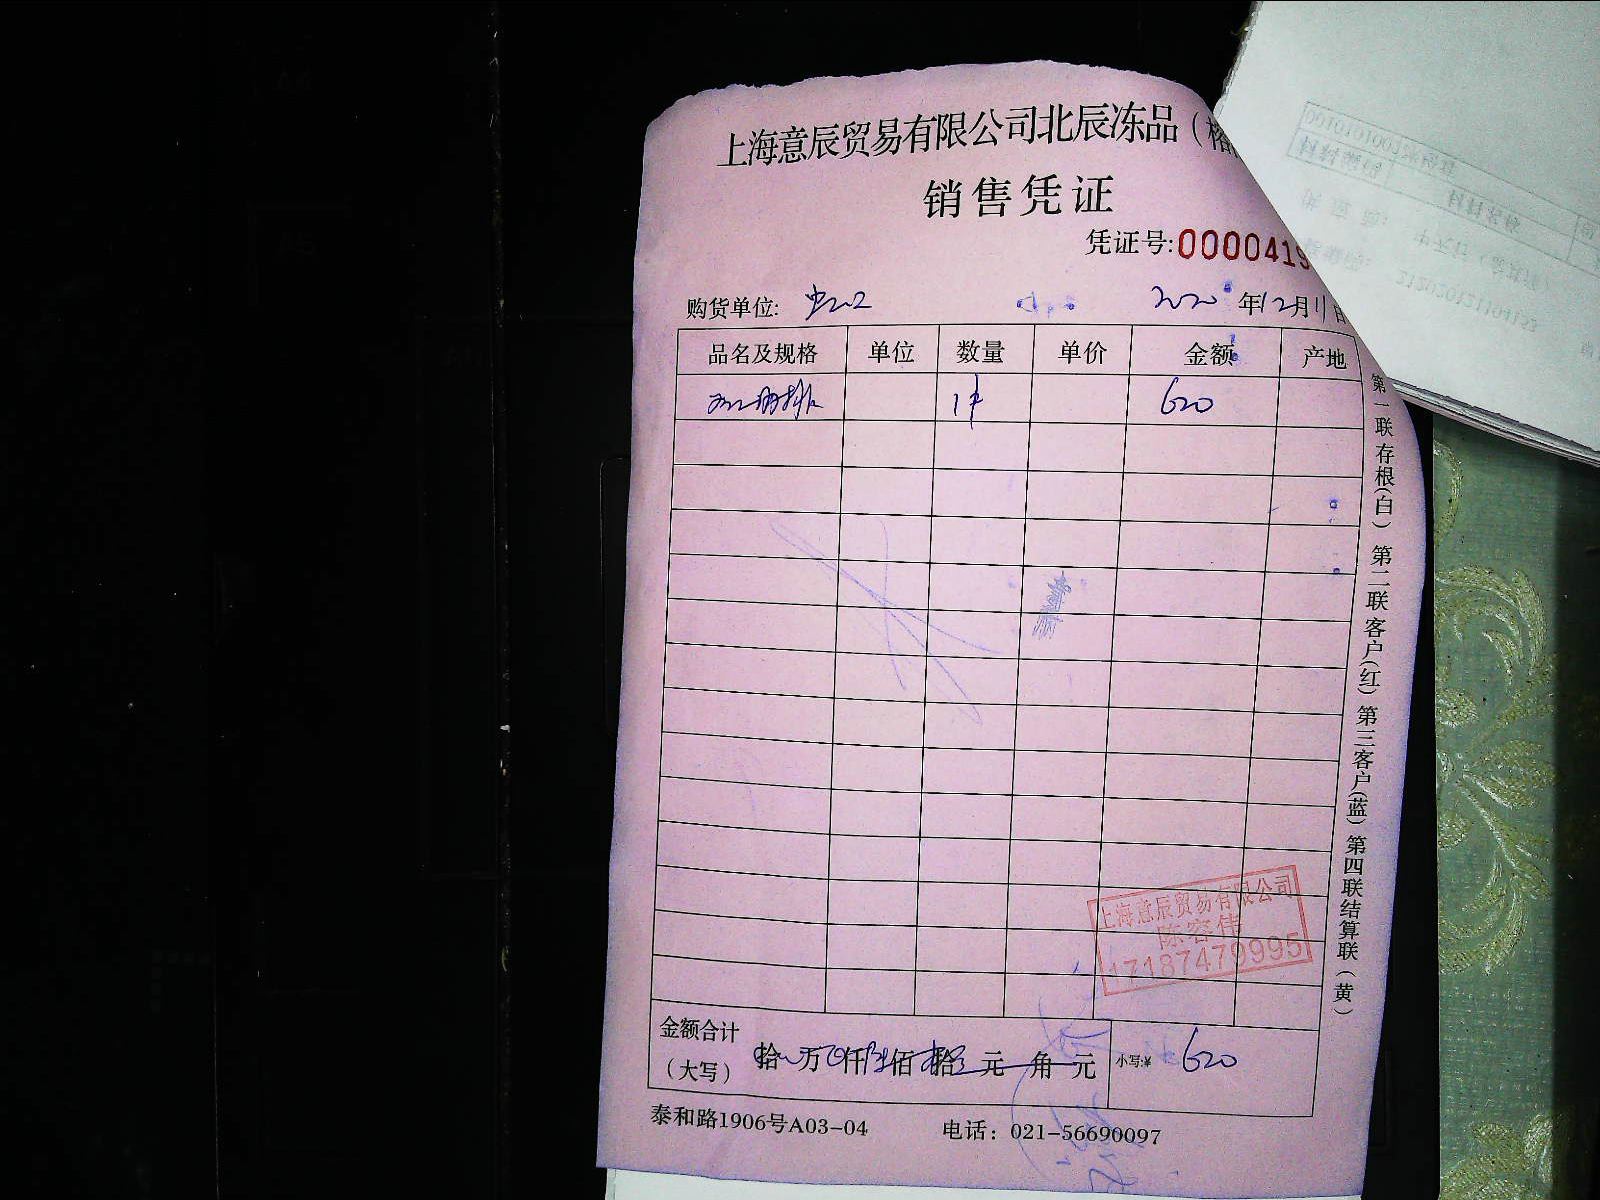 上海意辰贸易有限公司北辰冻品（榕
销售凭证
凭证号:0000419
购货单位: 2020年12月11日
品名及规格 单位 数量 单价 金额 产地
1件 620
第一联存根(白) 第二联客户(红) 第三客户(蓝) 第四联结算联(黄)
上海意辰贸易有限公司
陈容伟
17187479995
金额合计
（大写） 拾 万 仟 佰 拾 元 角 元 小写:¥ 620
泰和路1906号A03-04 电话：021-56690097